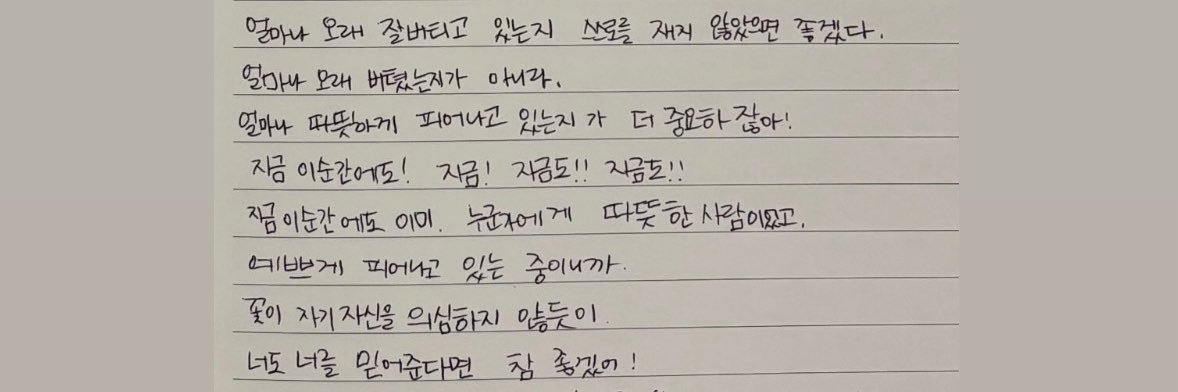 얼마나 오래 잘버티고 있는지 스스로를 재지 않았으면 좋겠다.
얼마나 오래 버텼는지가 아니라.
얼마나 따뜻하게 피어나고 있는지가 더 중요하잖아!
지금 이순간에도! 지금! 지금도!! 지금도!!
지금이순간에도 이미. 누군가에게 따뜻한 사람이였고,
예쁘게 피어나고 있는 중이니까.
꽃이 자기자신을 의심하지 않듯이.
너도 너를 믿어준다면 참 좋겠어!